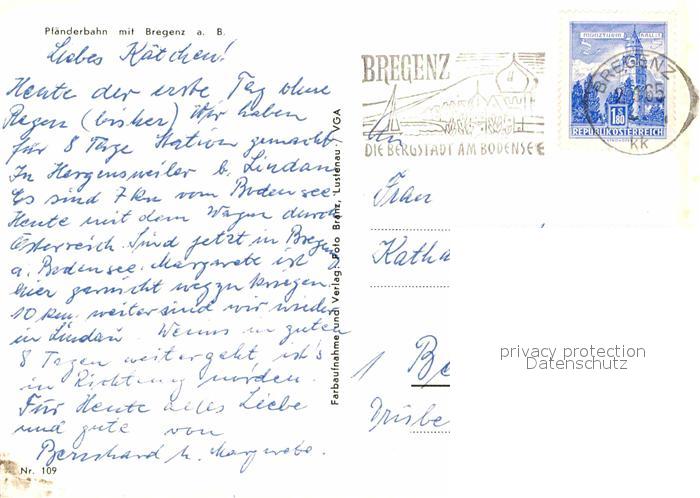 Pfänderbahn mit Bregenz a. B.
Liebes Kätchen!
Heute der erste Tag ohne
Regen (bisher) Wir haben
für 8 Tage Station gemacht
In Hergensweiler b. Lindau
Es sind 7 km vom Bodensee.
Heute mit dem Wagen durch
Österreich. Sind jetzt in Bregenz
a. Bodensee. Margarete ist
hier garnicht wegzukriegen
10 km. weiter sind wir wieder
in Lindau. Wenns in guten
8 Tagen weitergeht, ist's
in Richtung norden.
Für Heute alles Liebe
und gute von
Bernhard u. Margarete.
Nr. 109
Farbaufnahme und Verlag: Foto Branz, Lustenau / VGA
BREGENZ
DIE BERGSTADT AM BODENSEE
MÜNZTURM HALL I. T.
1.80
REPUBLIK ÖSTERREICH
BREGENZ
65
kk
An
Frau
Katha
1 Be
Drisbe
privacy protection
Datenschutz